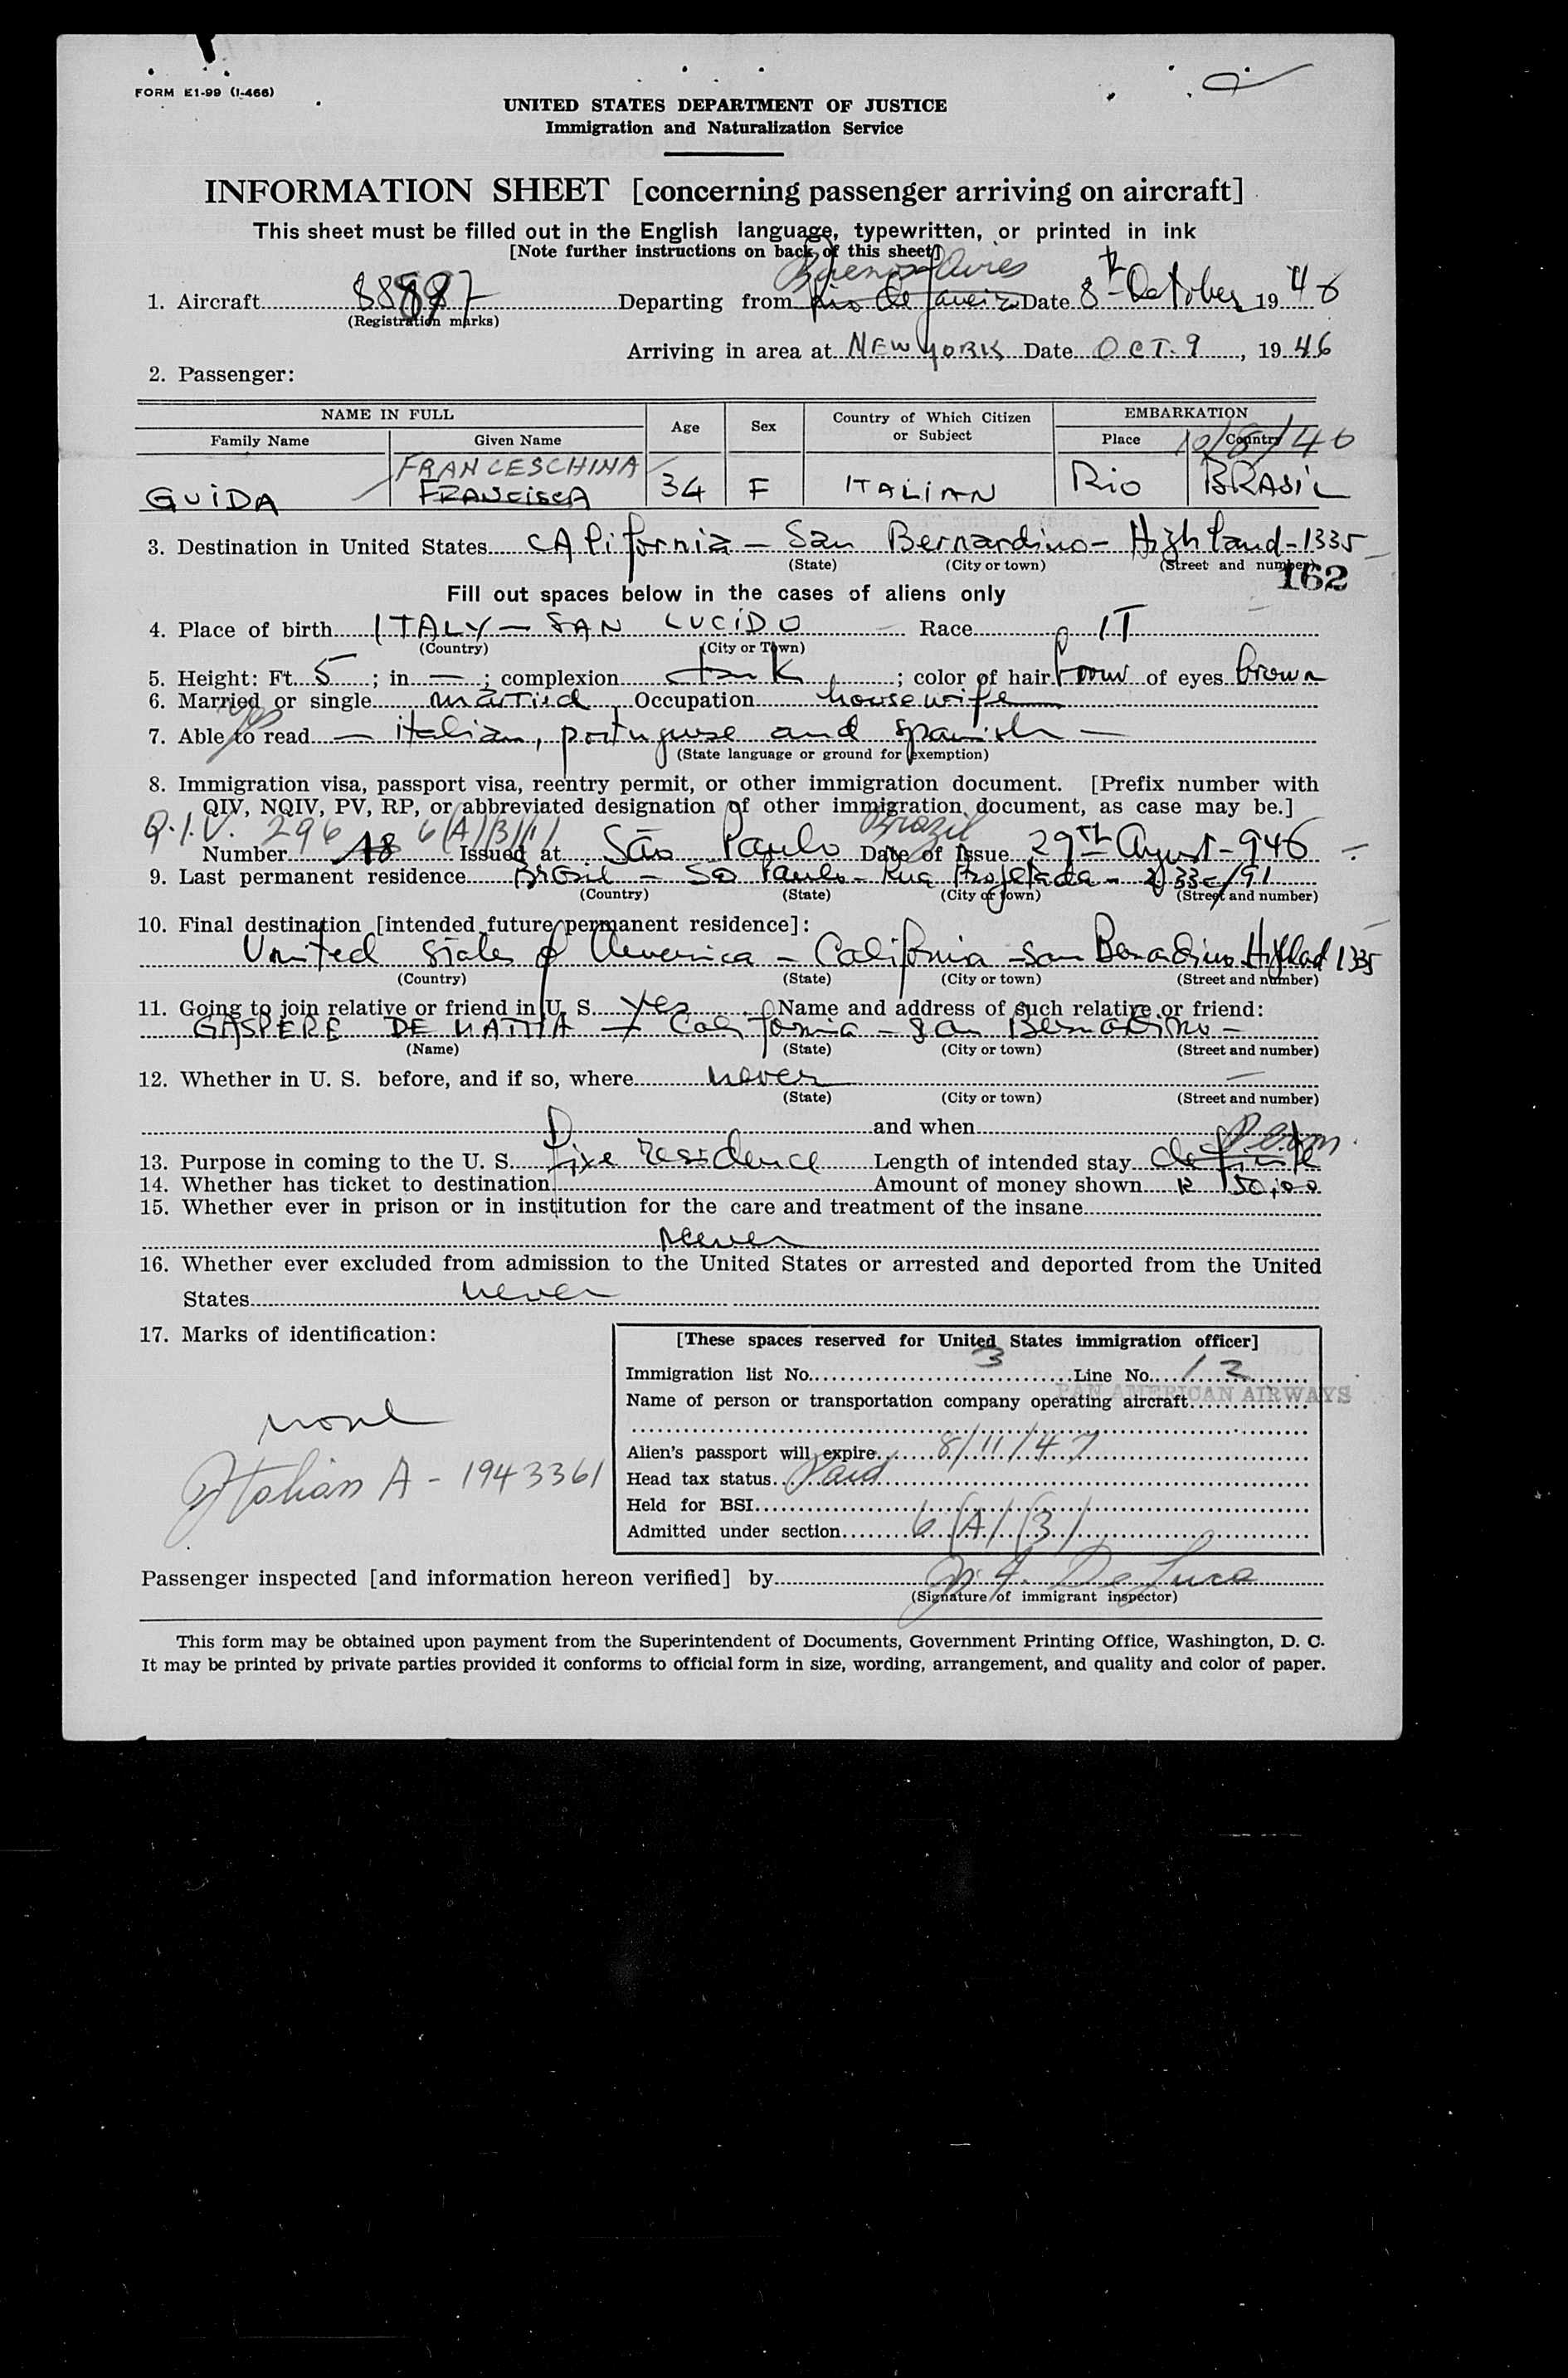 FORM E1-99 (I-466)
UNITED STATES DEPARTMENT OF JUSTICE
Immigration and Naturalization Service
INFORMATION SHEET [concerning passenger arriving on aircraft]
This sheet must be filled out in the English language, typewritten, or printed in ink
[Note further instructions on back of this sheet]
Buenos Aires
1. Aircraft 88887 Departing from Rio de Janeiro Date 8th October 19 46
(Registration marks)
Arriving in area at NEW YORK Date OCT. 9, 19 46
2. Passenger:
NAME IN FULL Age Sex Country of Which Citizen or Subject EMBARKATION
Family Name Given Name Place Country 10/8/46
FRANCESCHINA
GUIDA FRANCISCA 34 F ITALIAN Rio BRASIL
3. Destination in United States CAlifornia - San Bernardino - Highland - 1335
(State) (City or town) (Street and number)
162
Fill out spaces below in the cases of aliens only
4. Place of birth ITALY - SAN LUCIDO Race IT
(Country) (City or Town)
5. Height: Ft. 5; in —; complexion dark; color of hair brown of eyes brown
6. Married or single married Occupation housewife
yes
7. Able to read — italian, portuguese and spanish —
(State language or ground for exemption)
8. Immigration visa, passport visa, reentry permit, or other immigration document. [Prefix number with
QIV, NQIV, PV, RP, or abbreviated designation of other immigration document, as case may be.]
Q.I.V. 296 6(A)(3)(1) Brazil
Number 18 Issued at São Paulo Date of Issue 29th August - 946
9. Last permanent residence Brasil - São Paulo - Rua Projetada -
(Country) (State) (City or town) (Street and number)
10. Final destination [intended future permanent residence]:
United States of America - California - San Bernardino Highland 1335
(Country) (State) (City or town) (Street and number)
11. Going to join relative or friend in U. S. yes Name and address of such relative or friend:
GASPERE DE MATTIA - California - San Bernardino -
(Name) (State) (City or town) (Street and number)
12. Whether in U. S. before, and if so, where never —
(State) (City or town) (Street and number)
and when
Perm.
13. Purpose in coming to the U. S. fixe residence Length of intended stay definite
14. Whether has ticket to destination Amount of money shown 50,00
15. Whether ever in prison or in institution for the care and treatment of the insane
never
16. Whether ever excluded from admission to the United States or arrested and deported from the United
States never
17. Marks of identification:
none
Italian A - 1943361
[These spaces reserved for United States immigration officer]
Immigration list No. 3 Line No. 12
PAN AMERICAN AIRWAYS
Name of person or transportation company operating aircraft
Alien's passport will expire 8/11/47
Head tax status Paid
Held for BSI
Admitted under section 6(A)(3)
Passenger inspected [and information hereon verified] by De Luca
(Signature of immigrant inspector)
This form may be obtained upon payment from the Superintendent of Documents, Government Printing Office, Washington, D. C.
It may be printed by private parties provided it conforms to official form in size, wording, arrangement, and quality and color of paper.